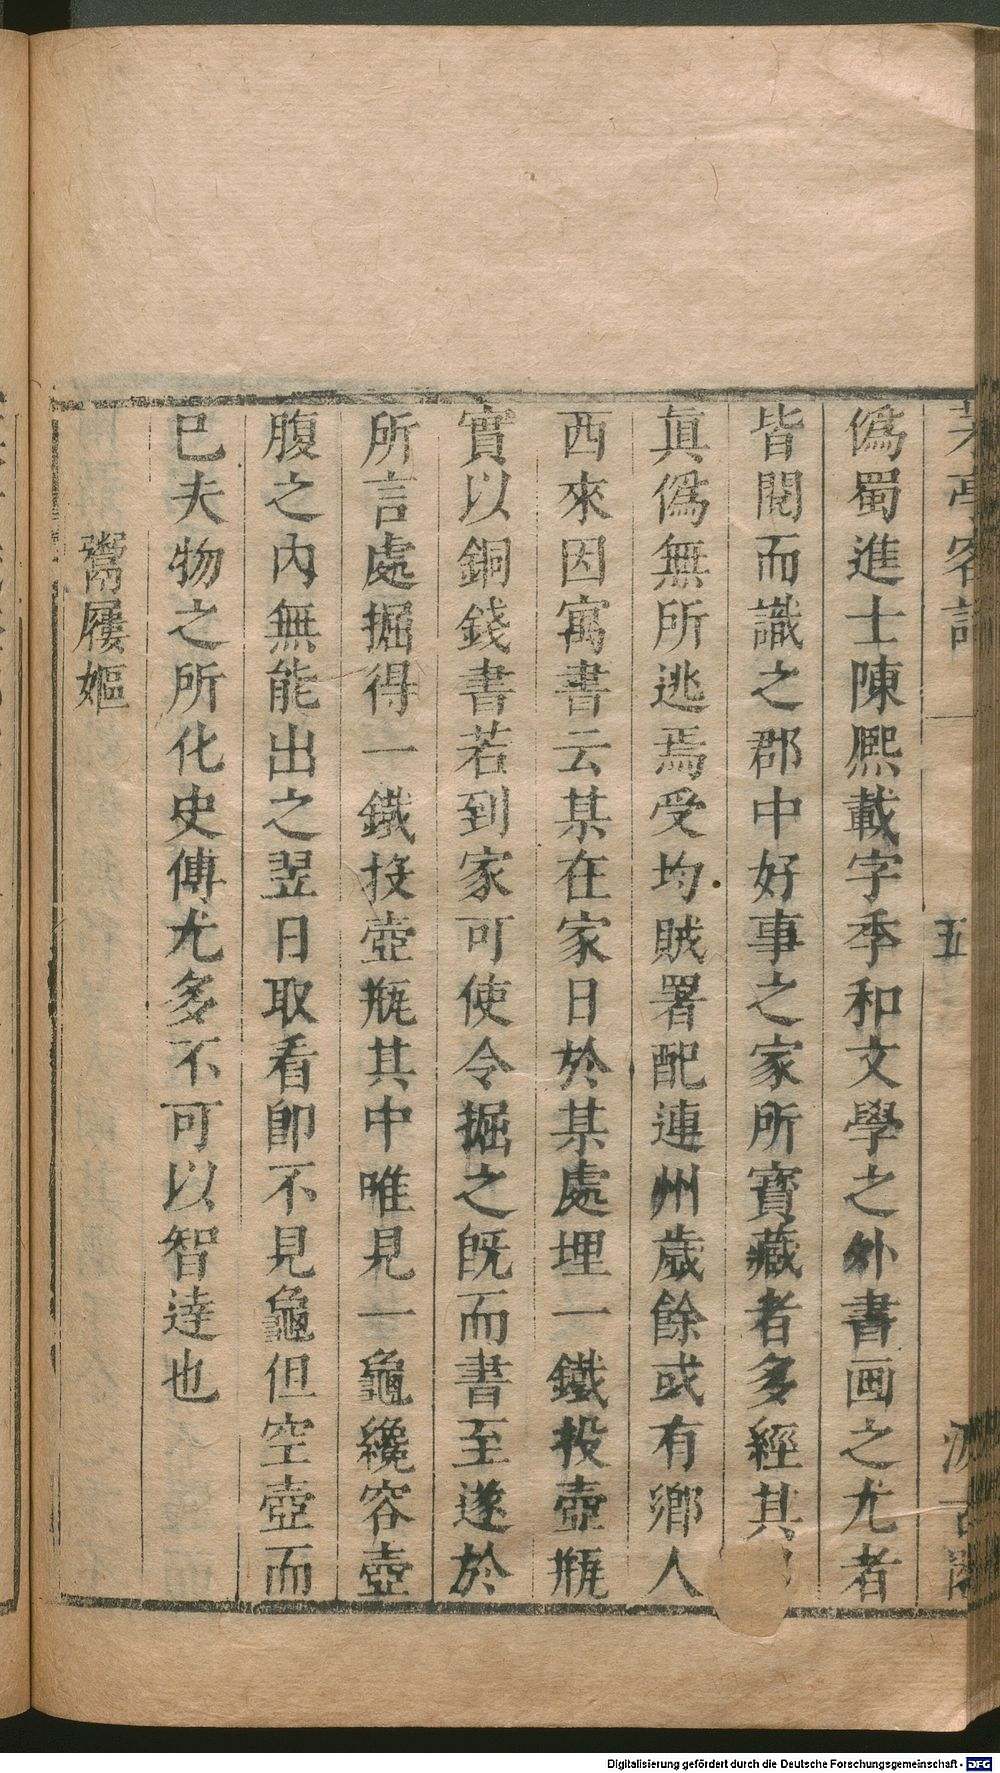 茅亭客話 一 五 汲古閣
僞蜀進士陳熈載字季和文學之外書画之尤者
皆閱而識之郡中好事之家所寶藏者多經其
眞僞無所逃焉受均賊署配連州歲餘或有鄉人
西來因寓書云某在家日於某處埋一鐵投壺甁
實以銅錢書若到家可使令掘之旣而書至遂於
所言處掘得一鐵投壺甁其中唯見一龜纔容壺
腹之內無能出之翌日取看卽不見龜但空壺而
巳夫物之所化史傳尤多不可以智達也
鬻屨嫗
Digitalisierung gefördert durch die Deutsche Forschungsgemeinschaft - DFG